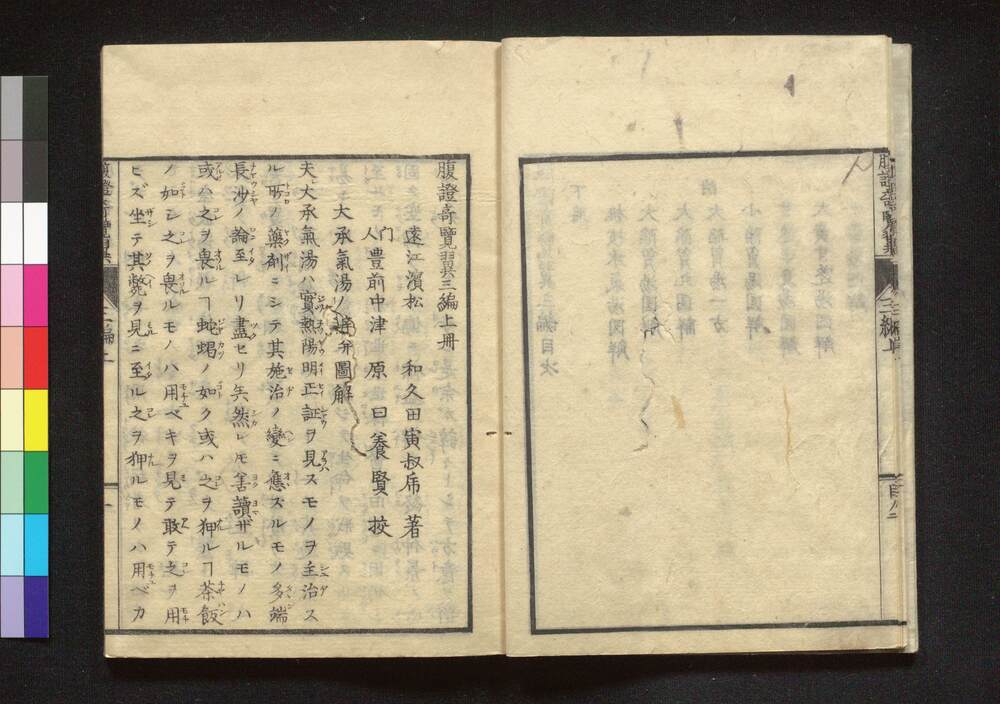 腹證奇覽翼三編上冊
遠江濱松 和久田寅叔虎著
門人 豊前中津 原曰養賢挍
大承氣湯ノ証并圖解
夫大承氣湯ハ實熱陽明正証ヲ見スモノヲ主治ス
ル所ノ藥剤ニシテ其施治ノ變ニ應ズルモノ多端
長沙ノ論至レリ盡セリ矣然レモ善讀ザルモノハ
或ハ之ヲ畏ルヿ蛇蝎ノ如ク或ハ之ヲ狎ルヿ茶飯
ノ如シ之ヲ畏ルモノハ用ベキヲ見テ敢テ之ヲ用
ヒズ坐テ其斃ヲ見ニ至ル之ヲ狎ルモノハ用ベカ
三編上